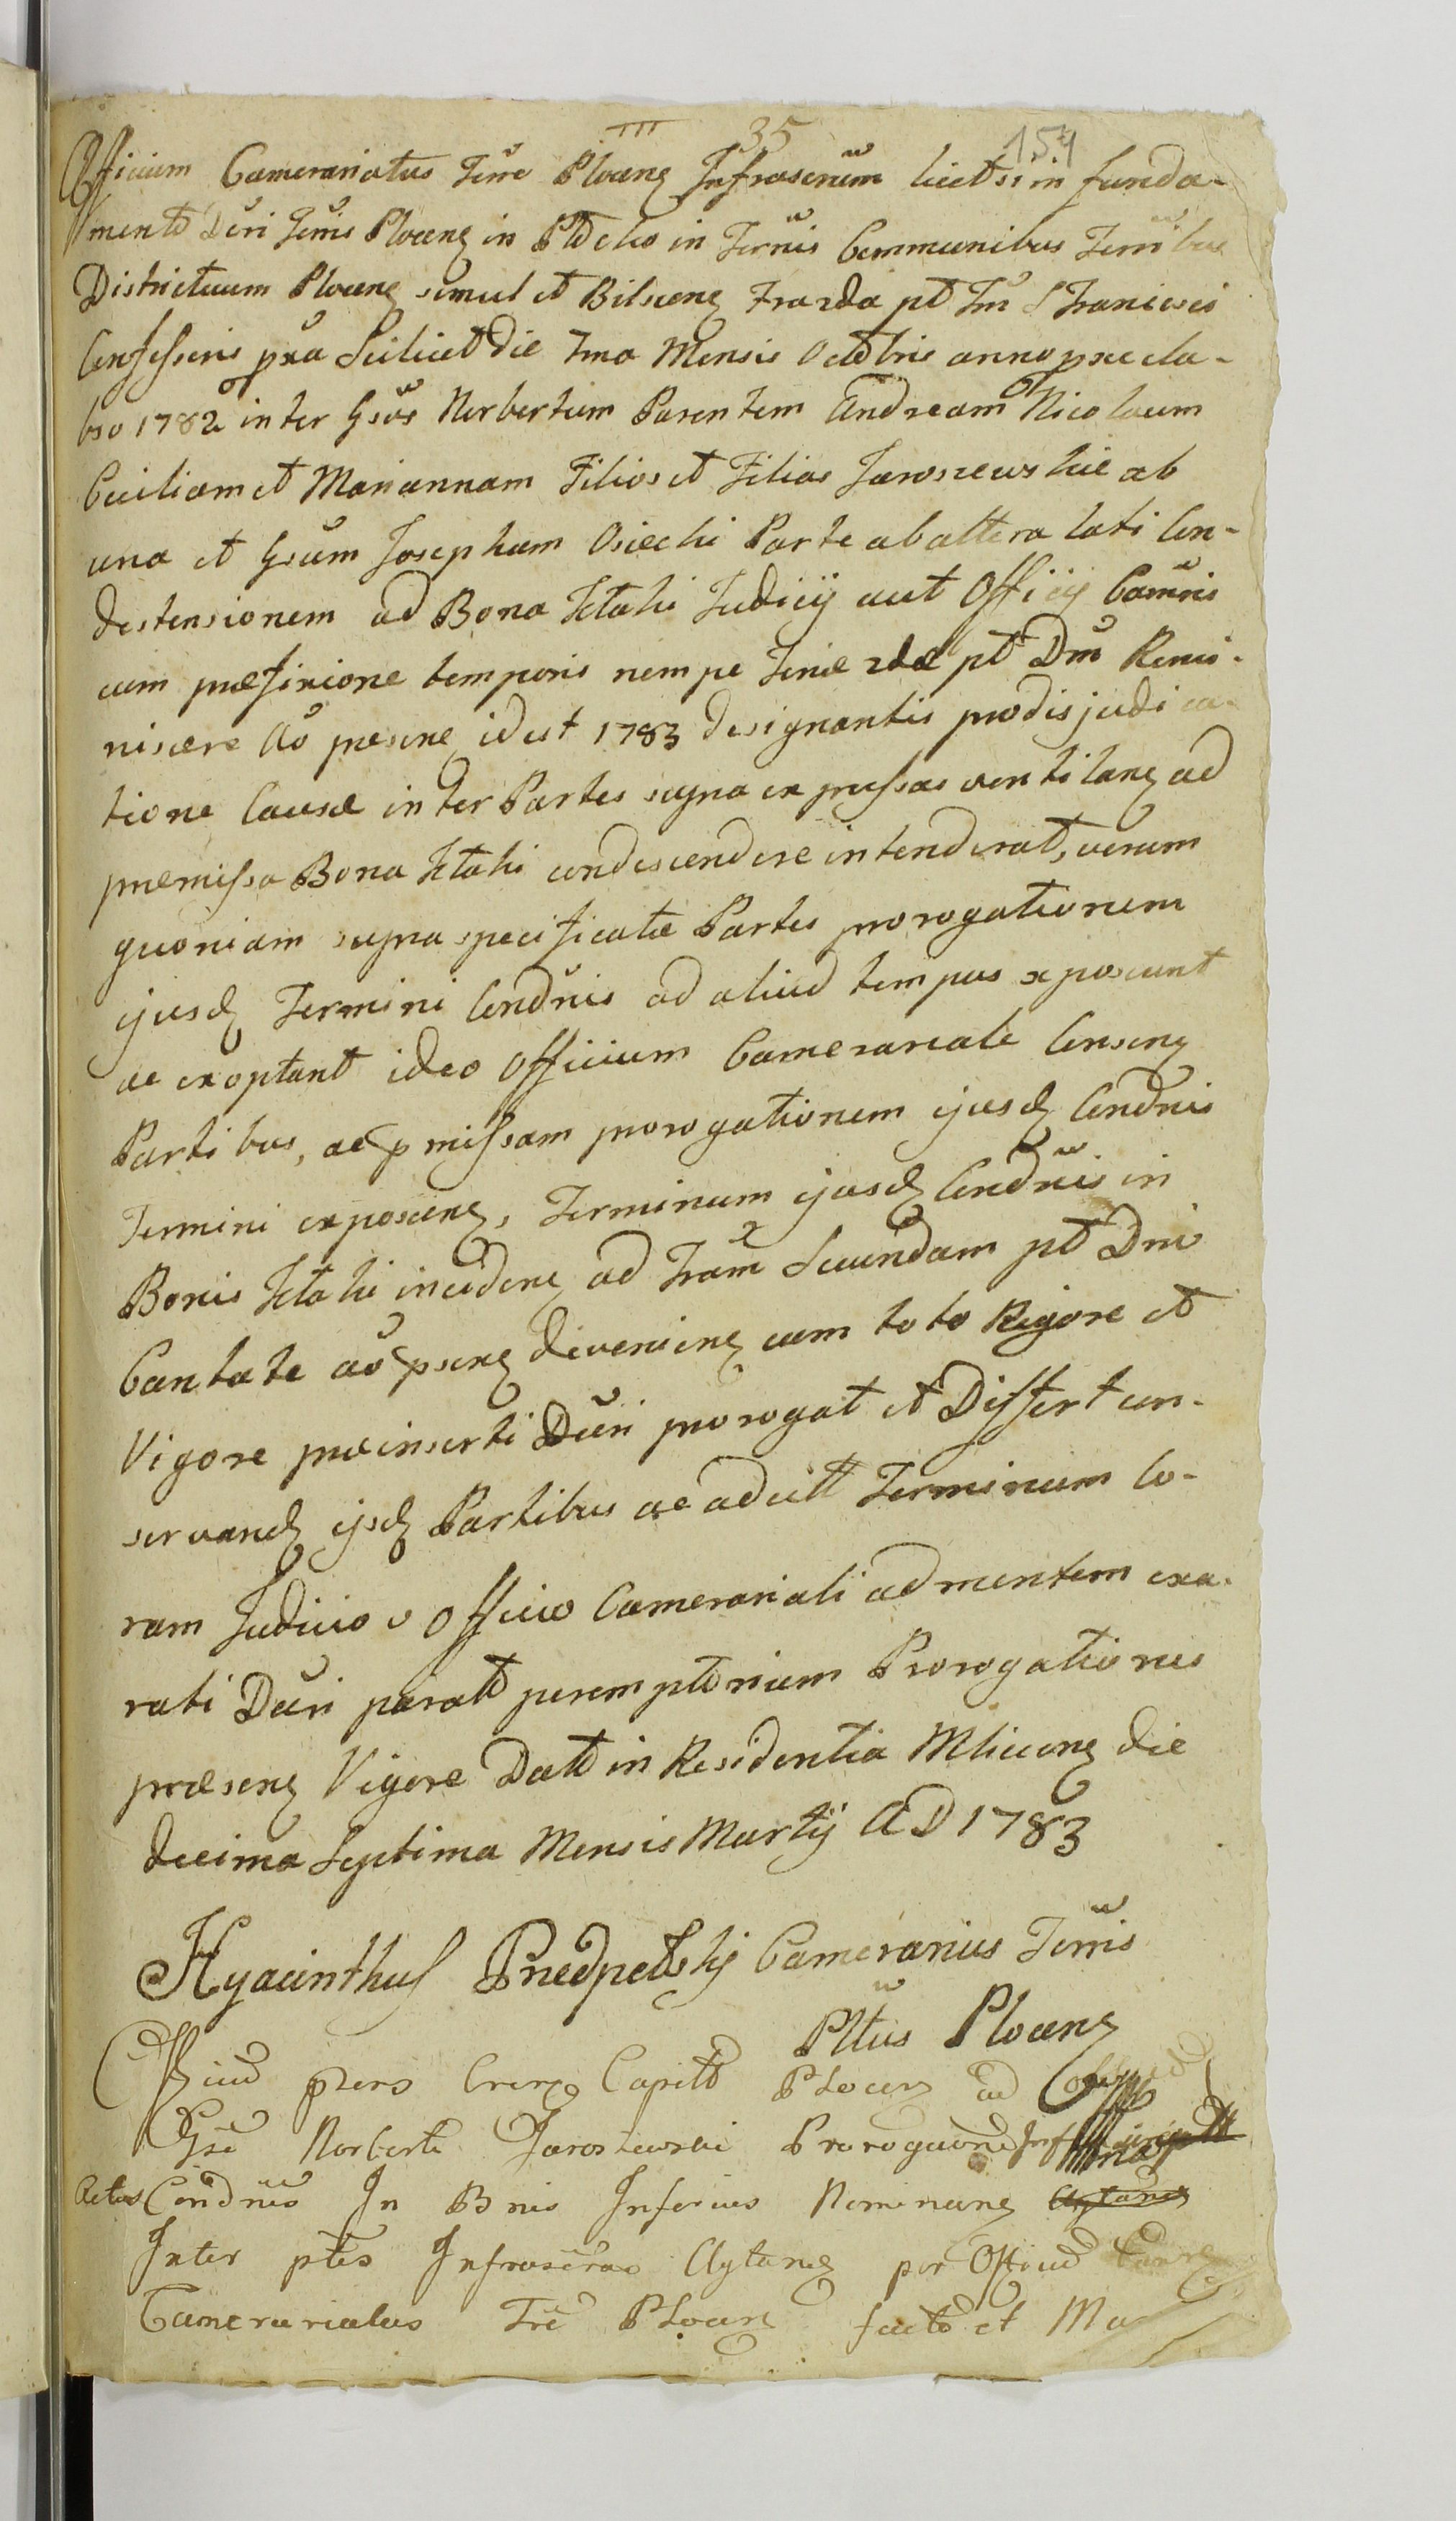 III 35 154
Officium Camerariatus Terre Plocen Infrascrium licet sim funda-
mento Dcri Terris Plocen in Pltdcho in Terris Communibus Terribus
Districtuum Plocen simul et Bilscen Fra 2da pt Fm S Francisci
Confessoris pxa Scilicet die 7ma Mensis Octobris anno præela-
bso 1782 inter Gsos Norbertum Parentem Andream Nicolaum
Ceciliam et Mariannam Filios et Filias Jaroszewskie ab
una et Gsum Josephum Osiecki Parte ab altera lati Con-
destensionem ad Bona Ktaki Judicij aut Officij Camris
cum præfixione temporis nempe Feriæ 2dæ pt Dm Remi-
niscere Ao præsene idest 1783 designantis prodisjudica-
tione Causæ inter Partes supra expressas ventilane ad
præmissa Bona Ktaki condescendere intenderat, verum
quoniam supra specificatæ Partes prorogationem
ejusd Termini Condnis ad aliud tempus exposcunt
ac exoptant ideo Officium Camerariale Consene
Partibus, ac pmissam prorogationem ejusd Condnis
Termini exposcene, Terminum ejusd Condnis in
Bonis Ktaki incidene ad Fram Secundam pt Dni
Cantate ao psene deveniene cum toto Rigore et
Vigore præinserti Dcri prorogat et Differt con-
servand ijsd Partibus ac ad illt Terminum Co-
ram Judicio v Officio Camerariali ad mentem exa-
rati Dcri parato peremptorium Prorogationis
præsene Vigore Datt in Residentia Mlicene die
decima Septima Mensis Martij AD 1783
Hyacinthus Przedpelskij Camerarius Terris
Pltus Plocen
Officiu prens Crers Capitt Plocen ad
Gsi Norberti Jaroszewski Prorogaone
Actus Condnis In Bnis Inferius Nominane
Inter ptes Infrascras Agitane per Officiu
Camerariatus Tre Plocen facto et